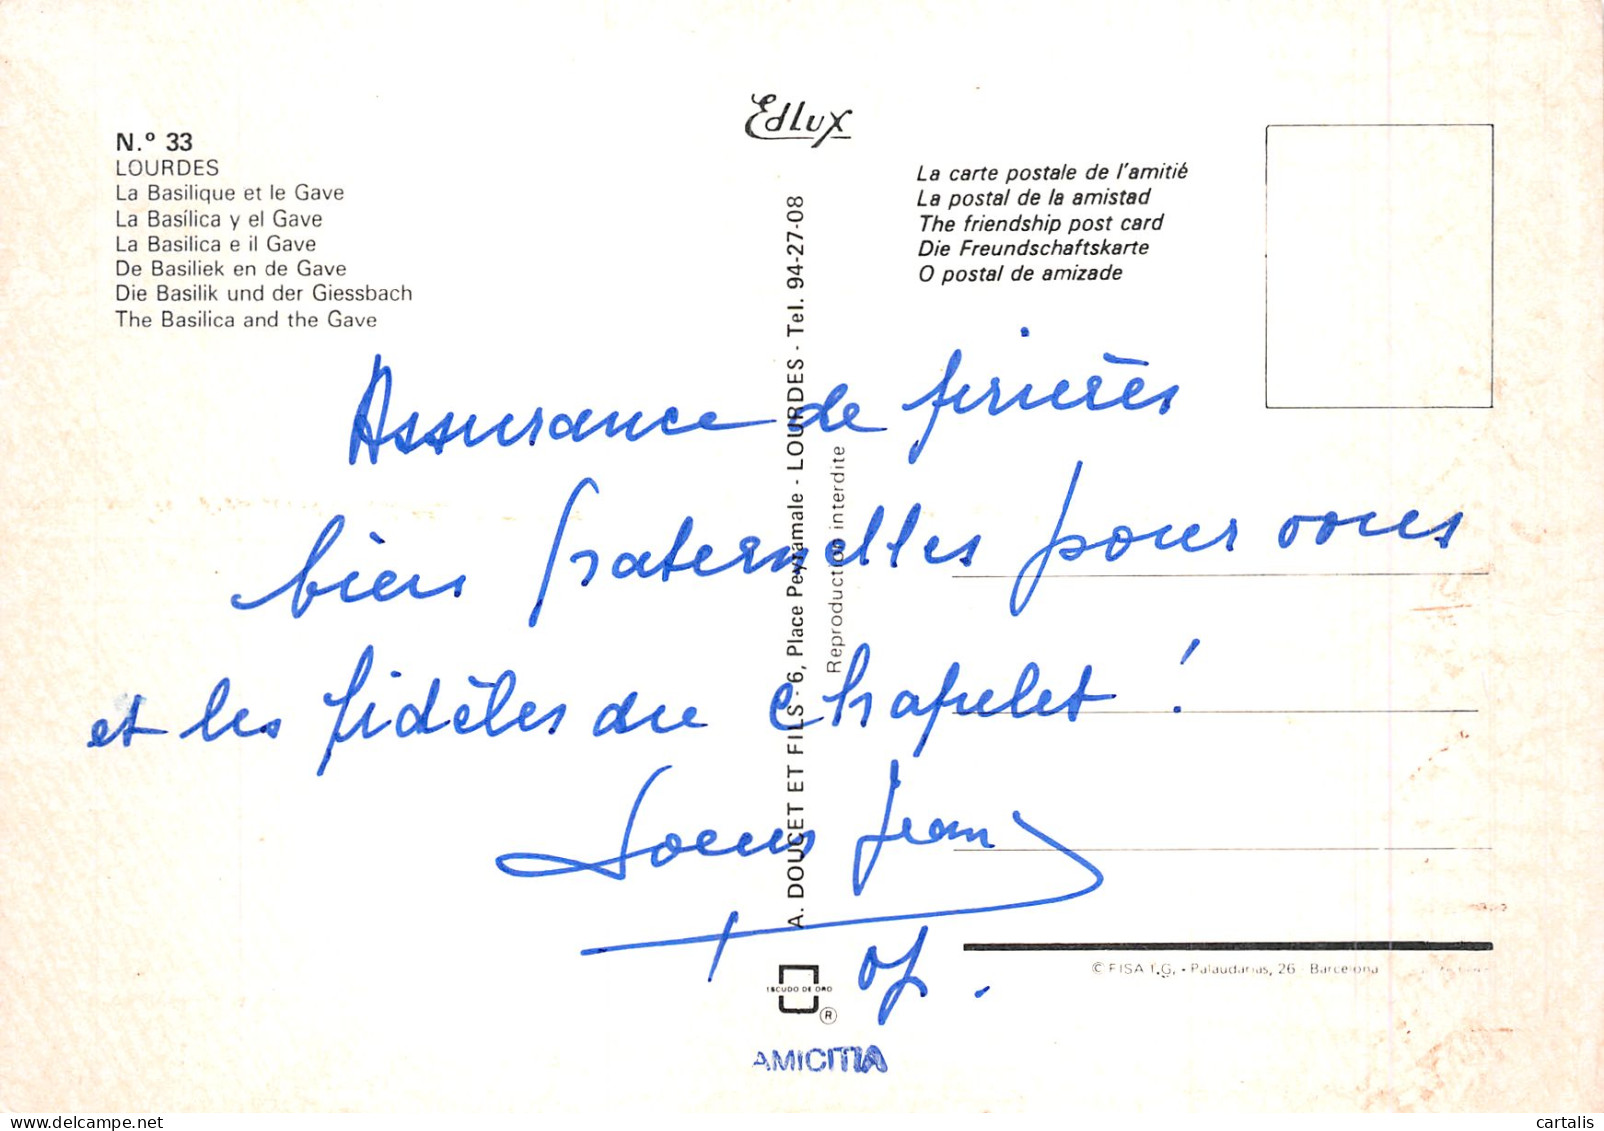 Edlux
N.º 33
LOURDES
La Basilique et le Gave
La Basílica y el Gave
La Basilica e il Gave
De Basiliek en de Gave
Die Basilik und der Giessbach
The Basilica and the Gave
La carte postale de l'amitié
La postal de la amistad
The friendship post card
Die Freundschaftskarte
O postal de amizade
A. DOUCET ET FILS - 6, Place Peyramale - LOURDES - Tel. 94-27-08
Reproduction interdite
Assurance de prières
bien fraternelles pour vous
et les fidèles du chapelet !
Jean
ESCUDO DE ORO
®
© FISA I.G. - Palaudarias, 26 - Barcelona
AMICITIA
cartalis